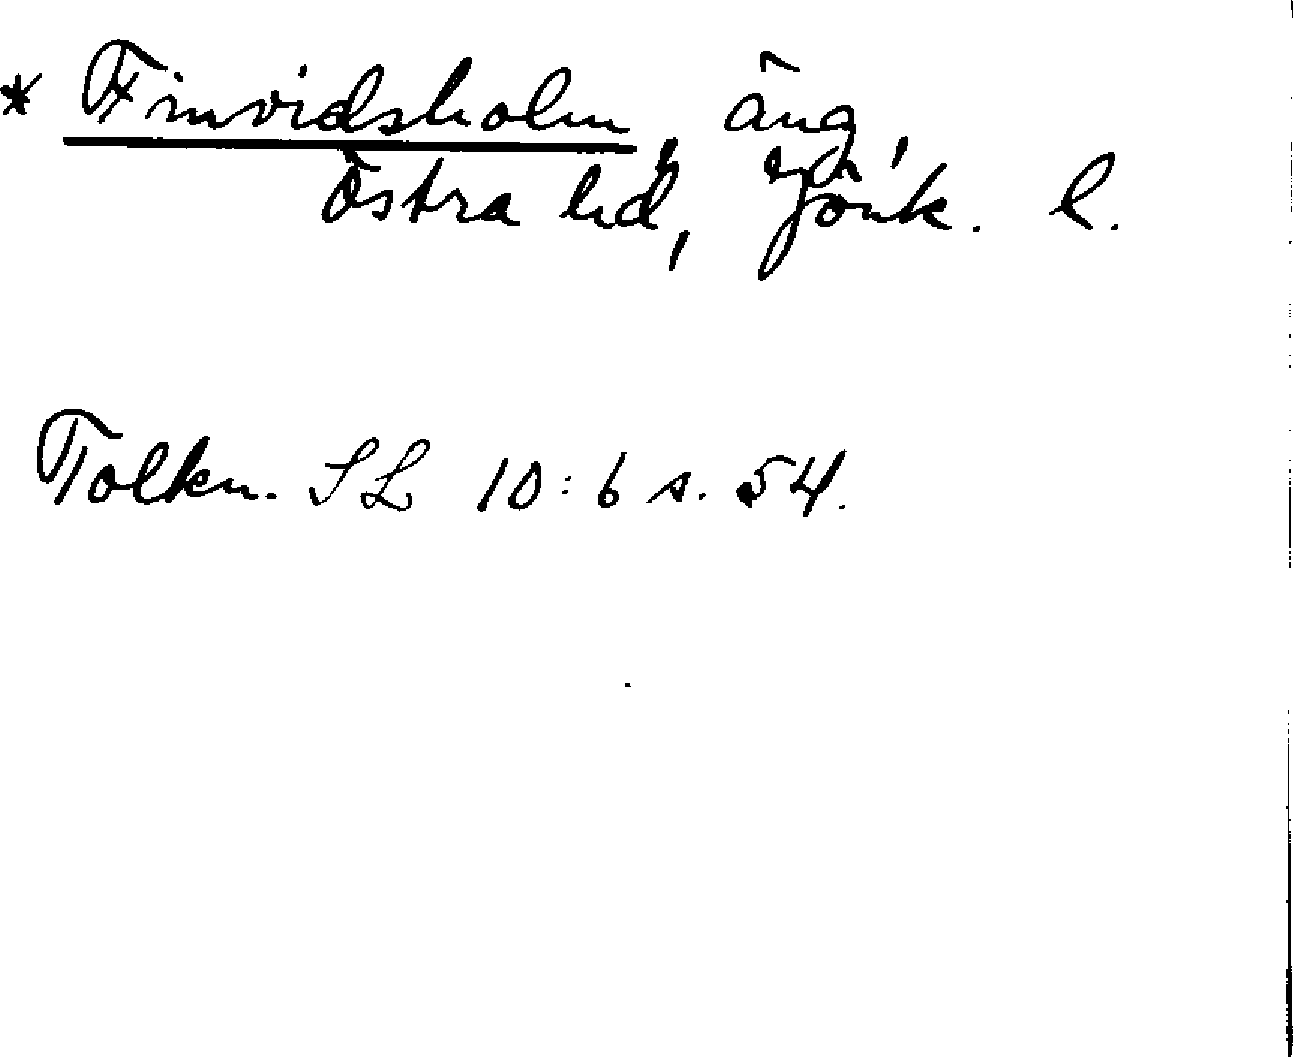 * Finvidsholm, äng,
Östra hd, Jönk. l.
Tolkn. SL 10:6 s. 54.